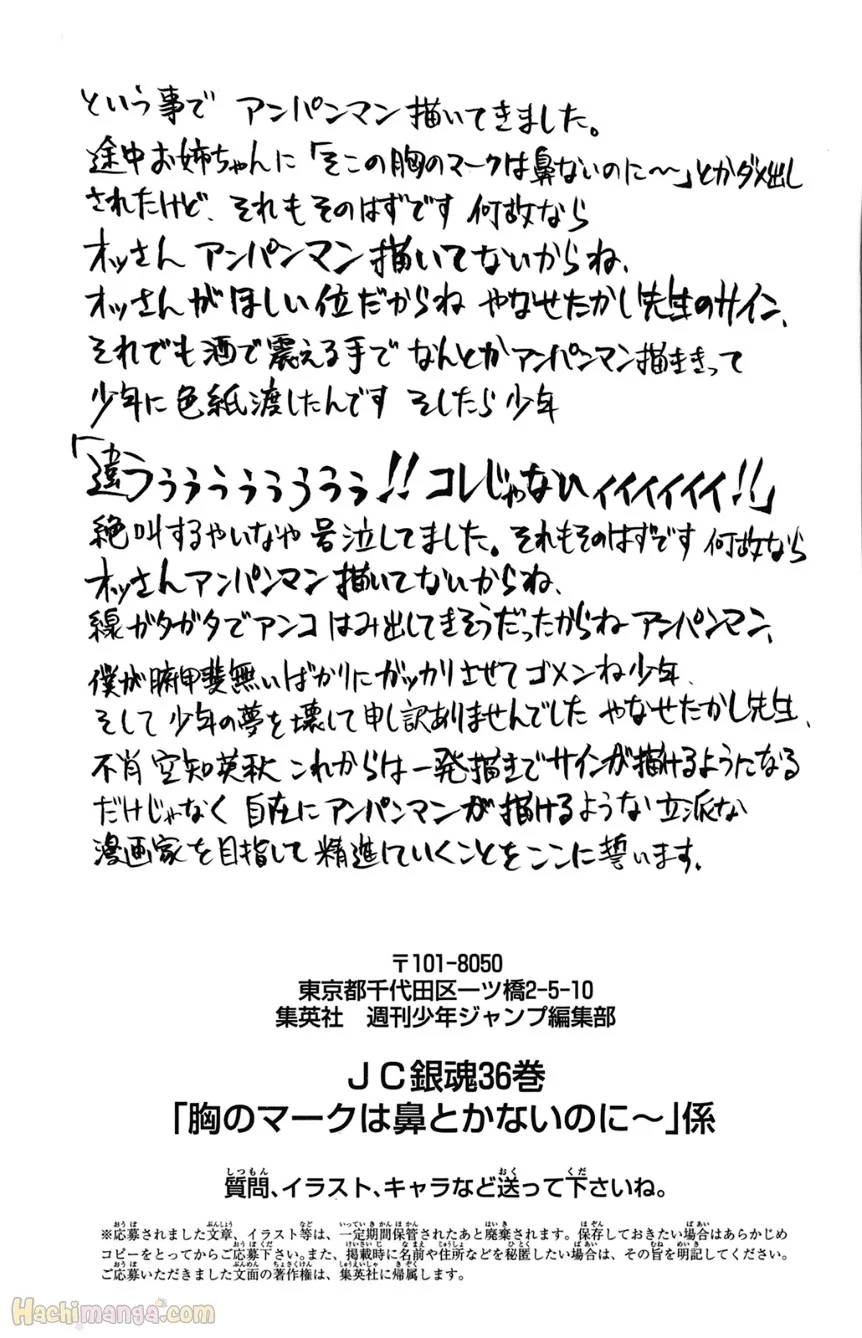 という事で アンパンマン描いてきました。
途中お姉ちゃんに「そこの胸のマークは鼻ないのに〜」とかダメ出し
されたけど、それもそのはずです 何故なら
オッさん アンパンマン描いてないからね、
オッさんがほしい位だからね やなせたかし先生のサイン、
それでも酒で震える手で なんとかアンパンマン描ききって
少年に色紙渡したんです そしたら少年
「違うぅぅぅぅぅぅぅぅ!!コレじゃないィィイィイイ!!」
絶叫するやいなや 号泣してました。それもそのはずです 何故なら
オッさんアンパンマン描いてないからね、
線ガタガタでアンコはみ出してきそうだったからねアンパンマン、
僕が腑甲斐無いばかりにガッカリさせてゴメンね少年、
そして少年の夢を壊して申し訳ありませんでした やなせたかし先生、
不肖 空知英秋 これからは一発描きでサインが描けるようになる
だけじゃなく 自在にアンパンマンが描けるような立派な
漫画家を目指して精進していくことをここに誓います。
〒101-8050
東京都千代田区一ツ橋2-5-10
集英社 週刊少年ジャンプ編集部
JC銀魂36巻
「胸のマークは鼻とかないのに〜」係
質問、イラスト、キャラなど送って下さいね。
※応募されました文章、イラスト等は、一定期間保管されたあと廃棄されます。保存しておきたい場合はあらかじめ
コピーをとってからご応募下さい。また、掲載時に名前や住所などを秘匿したい場合は、その旨を明記してください。
ご応募いただきました文面の著作権は、集英社に帰属します。
Hachimanga.com